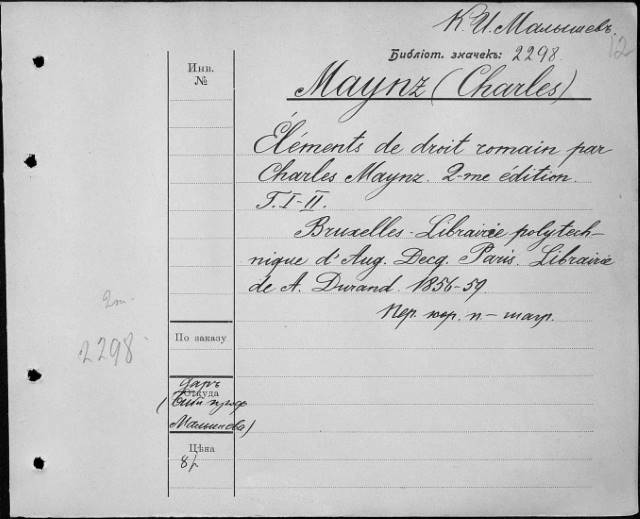 К. И. Малышевъ.
12
Библіот. значекъ: 2298.
Инв.
№
Maynz (Charles)
Éléments de droit romain par
Charles Maynz. 2-me édition.
T. I-II.
Bruxelles - Librairie polytech-
nique d'Aug. Decq. Paris. Librairie
de A. Durand. 1856-59
Пер. кор. п-
2 т.
2298
По заказу
Даръ
Откуда
(
Малышева)
Цѣна
8 р